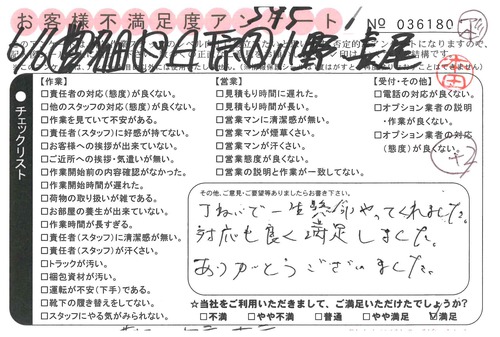 お客様不満足度アンケート
No 036180
チェックリスト
【作業】
□責任者の対応(態度)が良くない。
□他のスタッフの対応(態度)が良くない。
□作業を見ていて不安がある。
□責任者(スタッフ)に好感が持てない。
□お客様への挨拶が出来ていない。
□ご近所への挨拶・気遣いが無い。
□作業開始前の内容確認がなかった。
□作業開始時間が遅れた。
□荷物の取り扱いが雑である。
□お部屋の養生が出来ていない。
□作業時間が長すぎる。
□責任者(スタッフ)に清潔感が無い。
□責任者(スタッフ)が汗くさい。
□トラックが汚い。
□梱包資材が汚い。
□運転が不安(下手)である。
□靴下の履き替えをしてない。
□スタッフにやる気がみられない。
【営業】
□見積もり時間に遅れた。
□見積もり時間が長い。
□営業マンに清潔感が無い。
□営業マンが煙草くさい。
□営業マンが汗くさい。
□営業態度が良くない。
□営業の説明と作業が一致してない。
【受付・その他】
□電話の対応が良くない。
□オプション業者の説明
・作業が良くない。
□オプション業者の対応
(態度)が良くない。
+2
その他、ご意見・ご要望等ありましたらお書き下さい。
丁ねいで一生懸命やってくれました。
対応も良く満足しました。
ありがとうございました。
☆当社をご利用いただきまして、ご満足いただけたでしょうか?
□不満 □やや不満 □普通 □やや満足 ☑満足